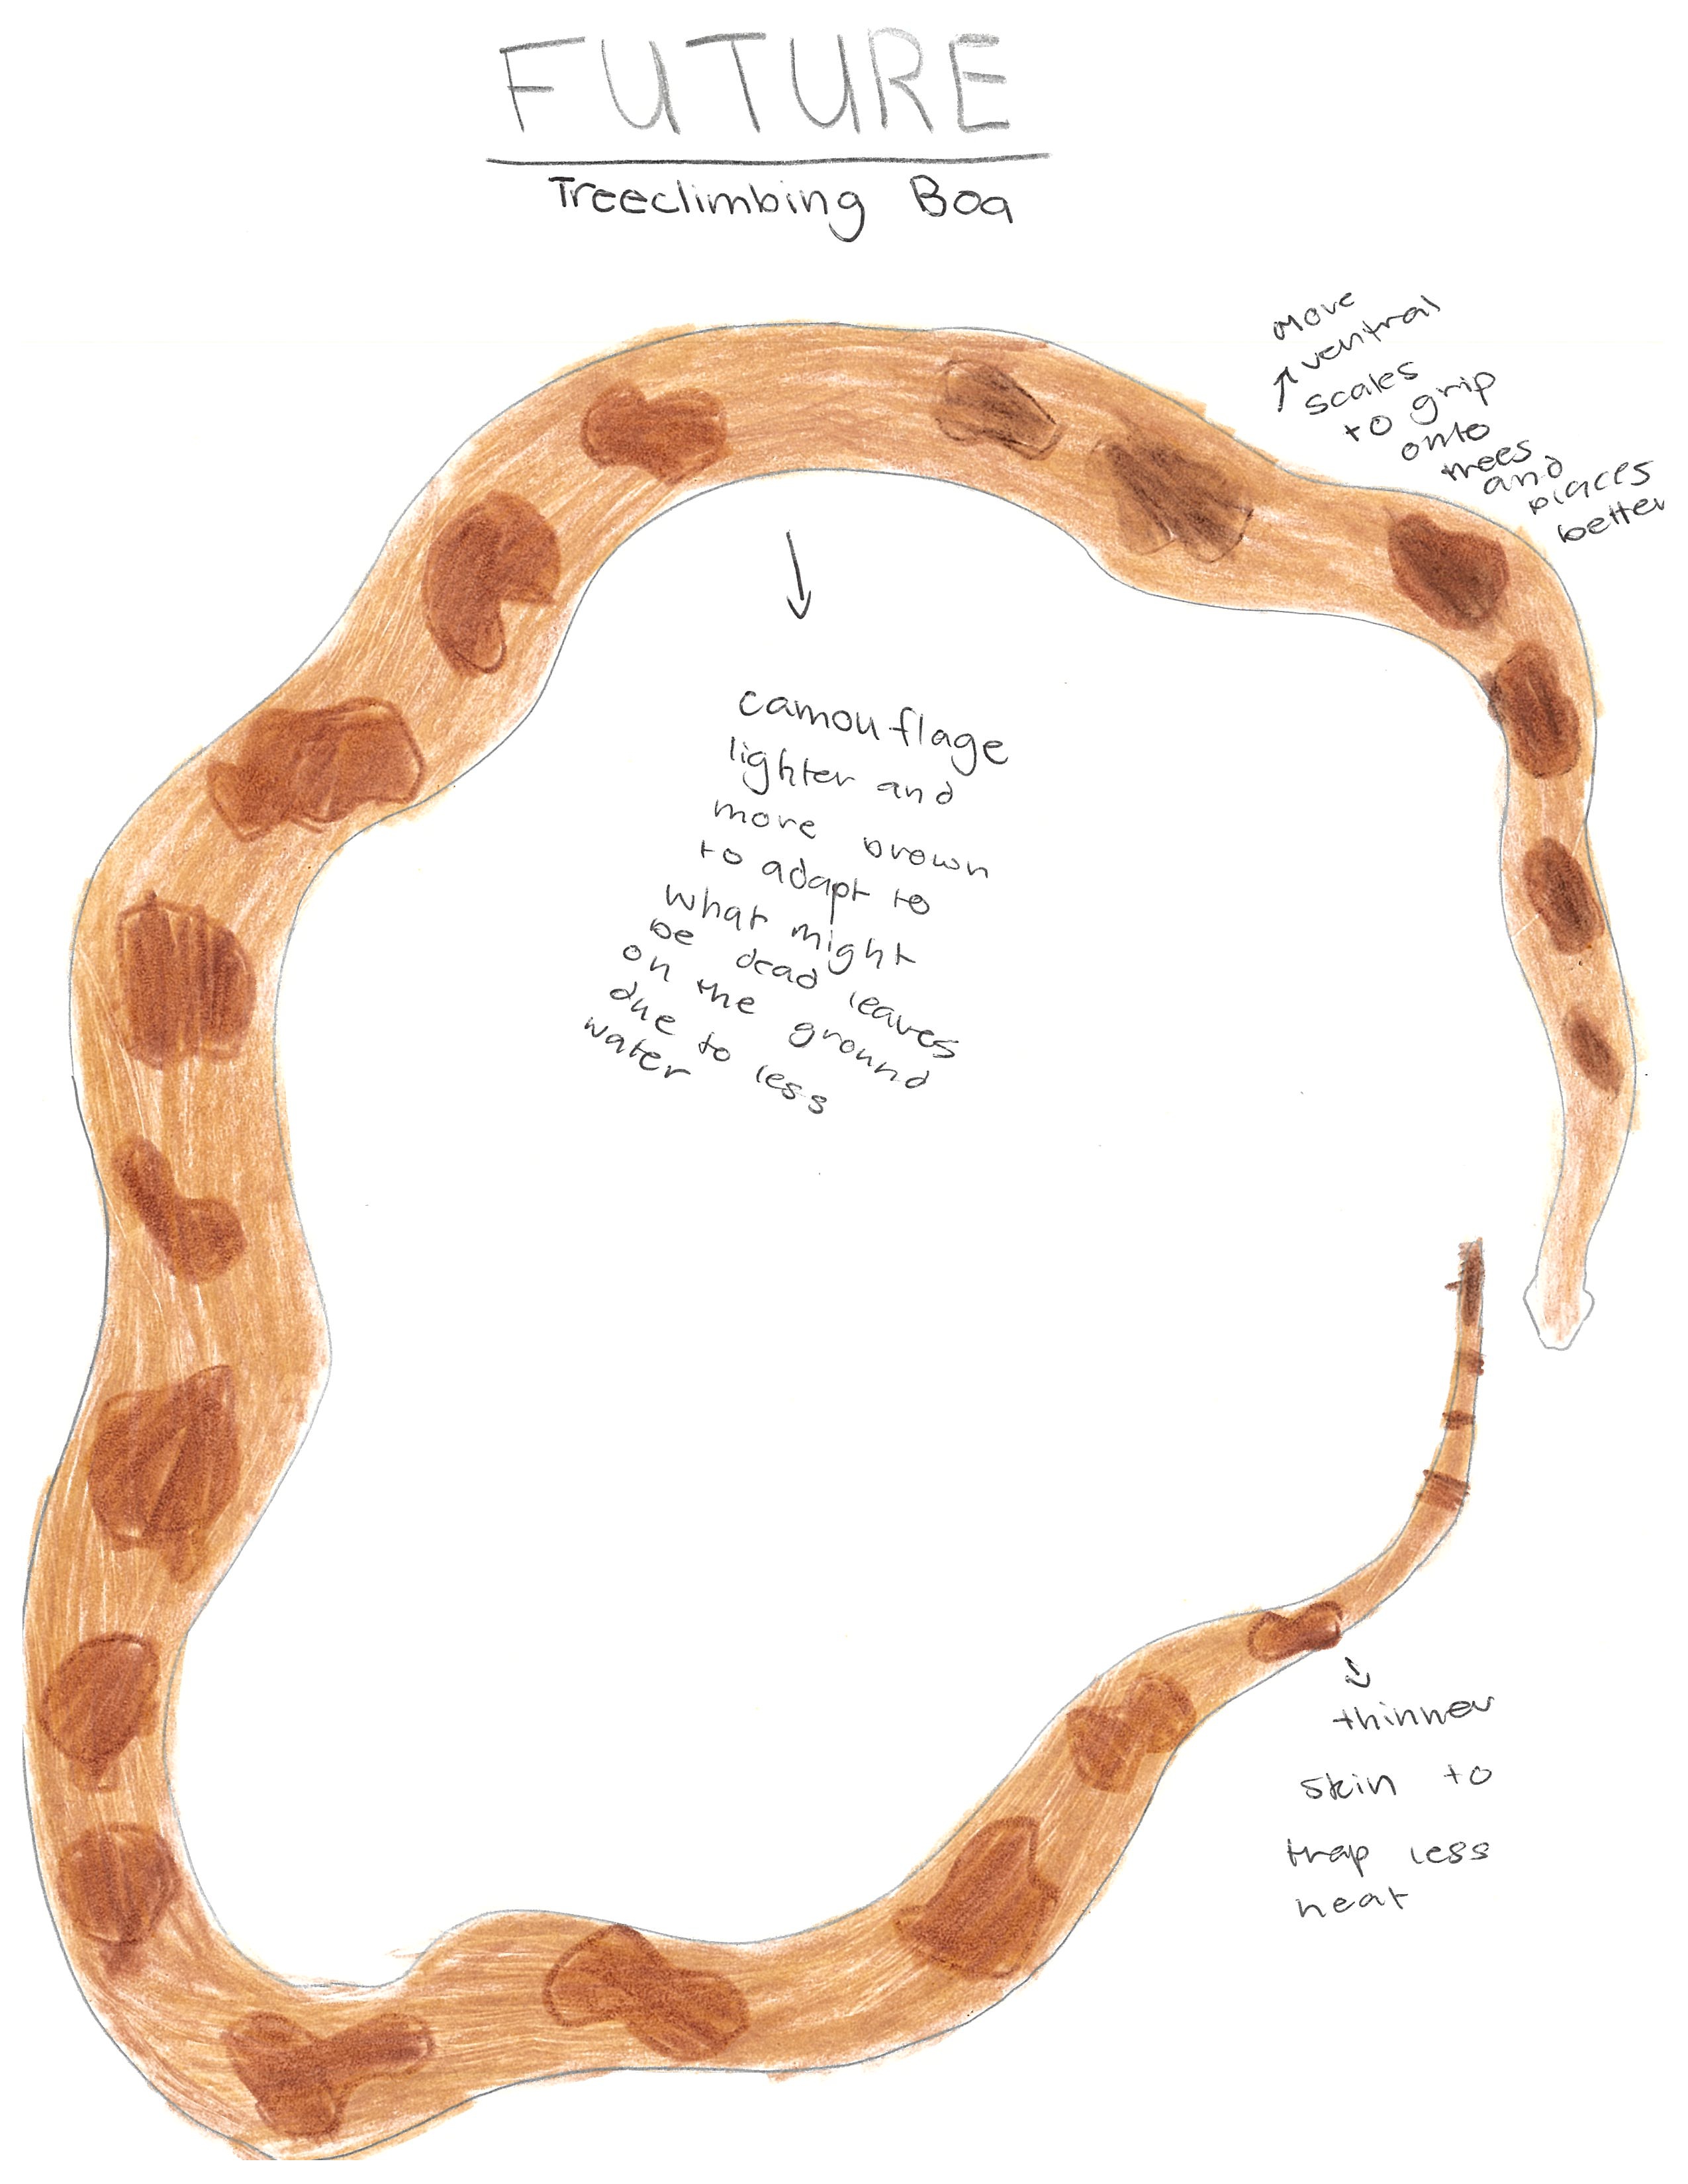 FUTURE
Treeclimbing Boa
more
ventral
scales
to grip
onto
trees
and
places
better
camouflage
lighter and
more brown
to adapt to
what might
be dead leaves
on the ground
due to less
water
thinner
skin to
trap less
heat